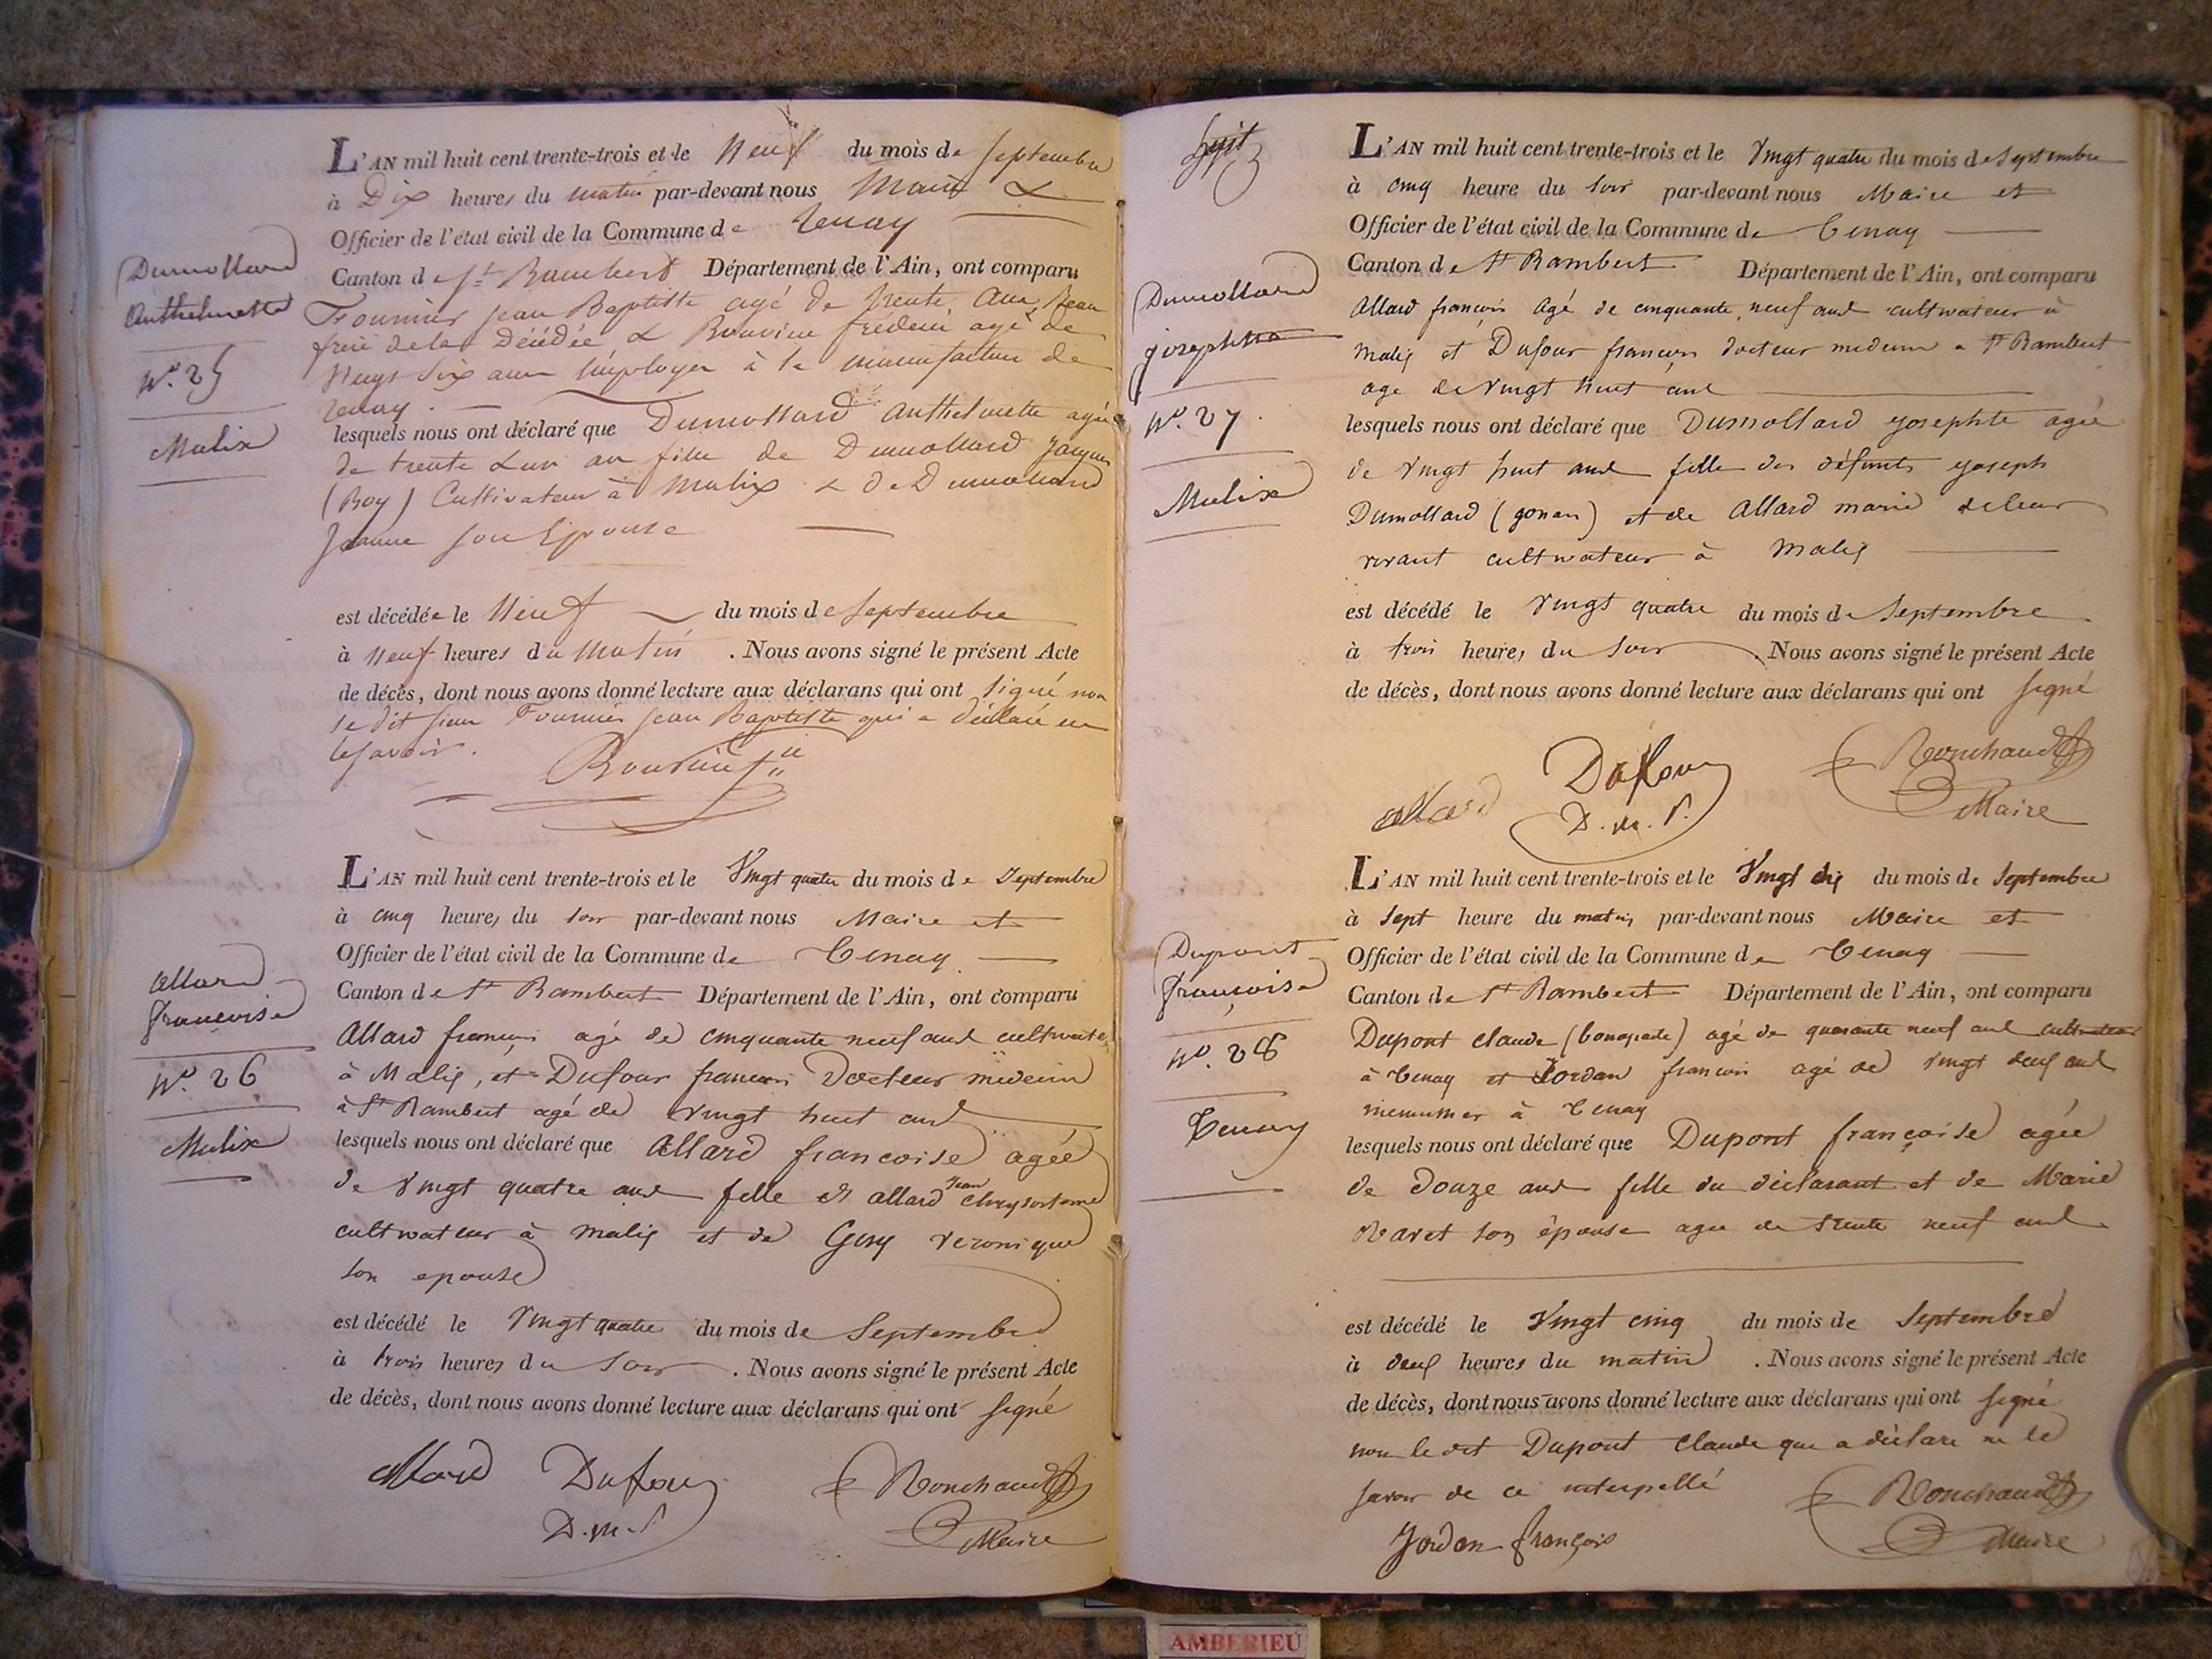 L'AN mil huit cent trente-trois et le Neuf du mois de septembre
à Dix heures du matin par-devant nous Maire &
Officier de l'état civil de la Commune de Tenay
Canton de St Rambert Département de l'Ain, ont comparu
Fournier jean Baptiste agé de trente ans, beau
frère de la Décédée & Bouvier frédéric agé de
vingt six ans employer à la manufacture de
tenay.
lesquels nous ont déclaré que Dumollard anthelmette agée
de trente & un an fille de Dumollard jacques
(Roy) Cultivateur à Malix & de Dumollard
jeanne son Epouse
est décédée le Neuf du mois de septembre
à Neuf heures du Matin . Nous avons signé le présent Acte
de décès, dont nous avons donné lecture aux déclarans qui ont signé non
le dit sieur Fournier jean Baptiste qui a déclaré ne
le savoir.
Dumollard
Anthelmette
No. 25
Malix
L'AN mil huit cent trente-trois et le Vingt quatre du mois de Septembre
à cinq heures du soir par-devant nous Maire et
Officier de l'état civil de la Commune de Tenay
Canton de St Rambert Département de l'Ain, ont comparu
Allard francois agé de cinquante neuf ans cultivateur
à Malix, et Dufour francois Docteur médecin
à St Rambert agé de vingt huit ans
lesquels nous ont déclaré que Allard francoise agée
de vingt quatre ans fille de allard jean chrysostome
cultivateur à malix et de Guy veronique
son epouse
est décédé le Vingt quatre du mois de Septembre
à trois heures du soir . Nous avons signé le présent Acte
de décès, dont nous avons donné lecture aux déclarans qui ont signé
Allard Dufour Ronchaud
D.M.P. Maire
Allard
francoise
No. 26
Malix
L'AN mil huit cent trente-trois et le Vingt quatre du mois de Septembre
à cinq heure du soir par-devant nous Maire et
Officier de l'état civil de la Commune de Tenay
Canton de St Rambert Département de l'Ain, ont comparu
Allard francois Agé de cinquante neuf ans cultivateur à
Malix et Dufour francois docteur medecin a St Rambert
age de vingt huit ans
lesquels nous ont déclaré que Dumollard josephte agée
de vingt huit ans fille des défunts joseph
Dumollard (gonan) et de Allard marie de leur
vivant cultivateur à Malix
est décédé le Vingt quatre du mois de Septembre
à trois heures du soir . Nous avons signé le présent Acte
de décès, dont nous avons donné lecture aux déclarans qui ont signé
Allard Dufour Ronchaud
D.M.P. Maire
Dumollard
josephte
No. 27
Malix
L'AN mil huit cent trente-trois et le Vingt six du mois de Septembre
à sept heure du matin par-devant nous Maire et
Officier de l'état civil de la Commune de Tenay
Canton de St Rambert Département de l'Ain, ont comparu
Dupont claude (bonaparte) agé de quarante neuf ans cultivateur
à Tenay et Jordan francois agé de vingt deux ans
menuisier à Tenay
lesquels nous ont déclaré que Dupont françoise agée
de Douze ans fille du déclarant et de Marie
Ravet son épouse agee de trente neuf ans
est décédé le Vingt cinq du mois de Septembre
à deux heures du matin . Nous avons signé le présent Acte
de décès, dont nous avons donné lecture aux déclarans qui ont signé
non le dit Dupont Claude qui a déclaré ne le
savoir de ce interpellé
Jordan françois Ronchaud
Maire
Dupont
françoise
No. 28
Tenay
AMBERIEU